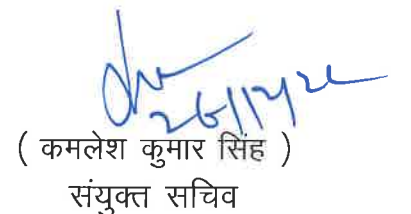 26/12/22
( कमलेश कुमार सिंह )
संयुक्त सचिव